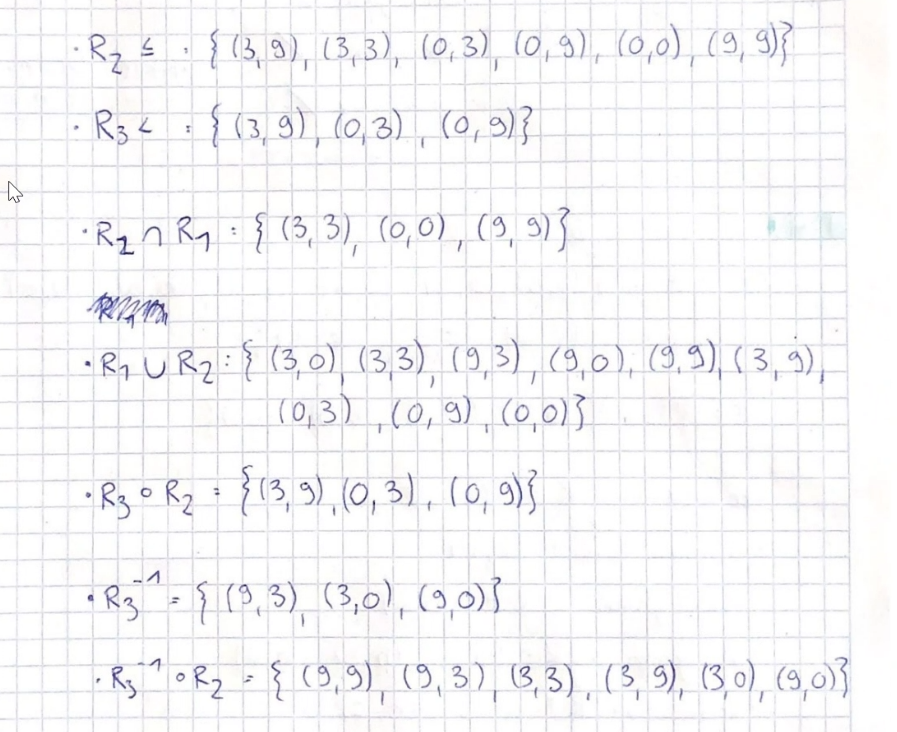 · R₂ ≤ : { (3,9), (3,3), (0,3), (0,9), (0,0), (9,9)}
· R₃ < : { (3,9), (0,3), (0,9)}
· R₂ ∩ R₁ : { (3,3), (0,0), (9,9)}
· R₁ ∪ R₂ : { (3,0), (3,3), (9,3), (9,0), (9,9), (3,9),
(0,3), (0,9), (0,0)}
· R₃ ∘ R₂ = {(3,9), (0,3), (0,9)}
· R₃⁻¹ = { (9,3), (3,0), (9,0)}
· R₃⁻¹ ∘ R₂ = { (9,9), (9,3), (3,3), (3,9), (3,0), (9,0)}